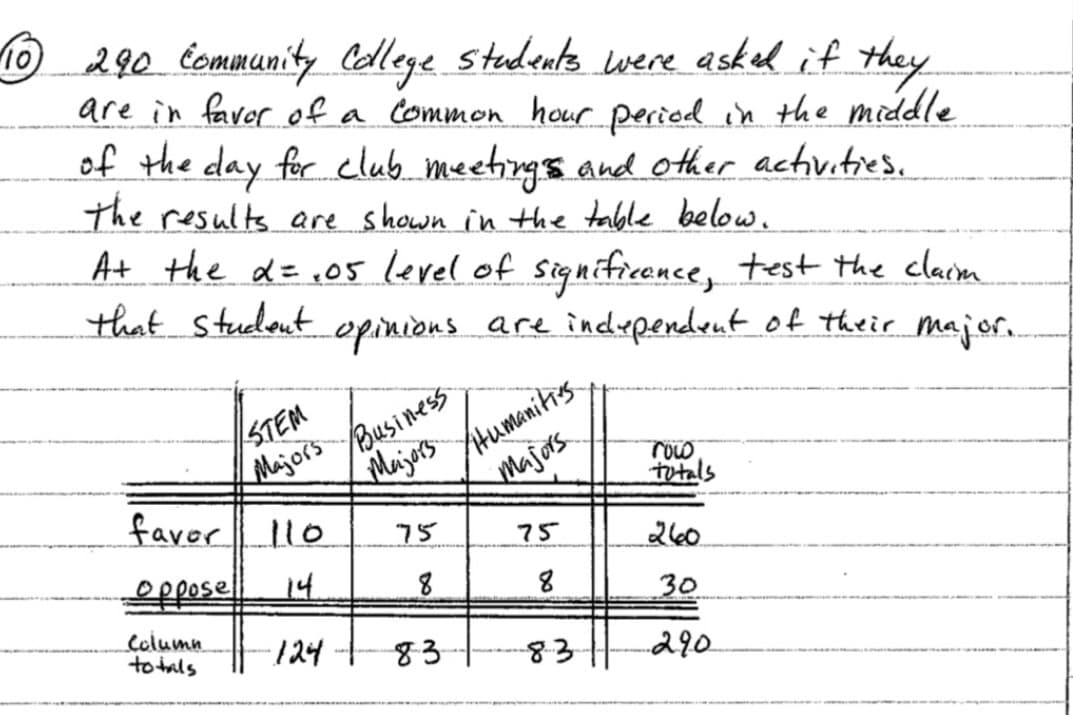 10 290 Community College students were asked if they
are in favor of a Common hour period in the middle
of the day for club meetings and other activities.
The results are shown in the table below.
At the α = .05 level of significance, test the claim
that student opinions are independent of their major.
STEM Majors Business Majors Humanities Majors row totals
favor 110 75 75 260
oppose 14 8 8 30
Column totals 124 83 83 290